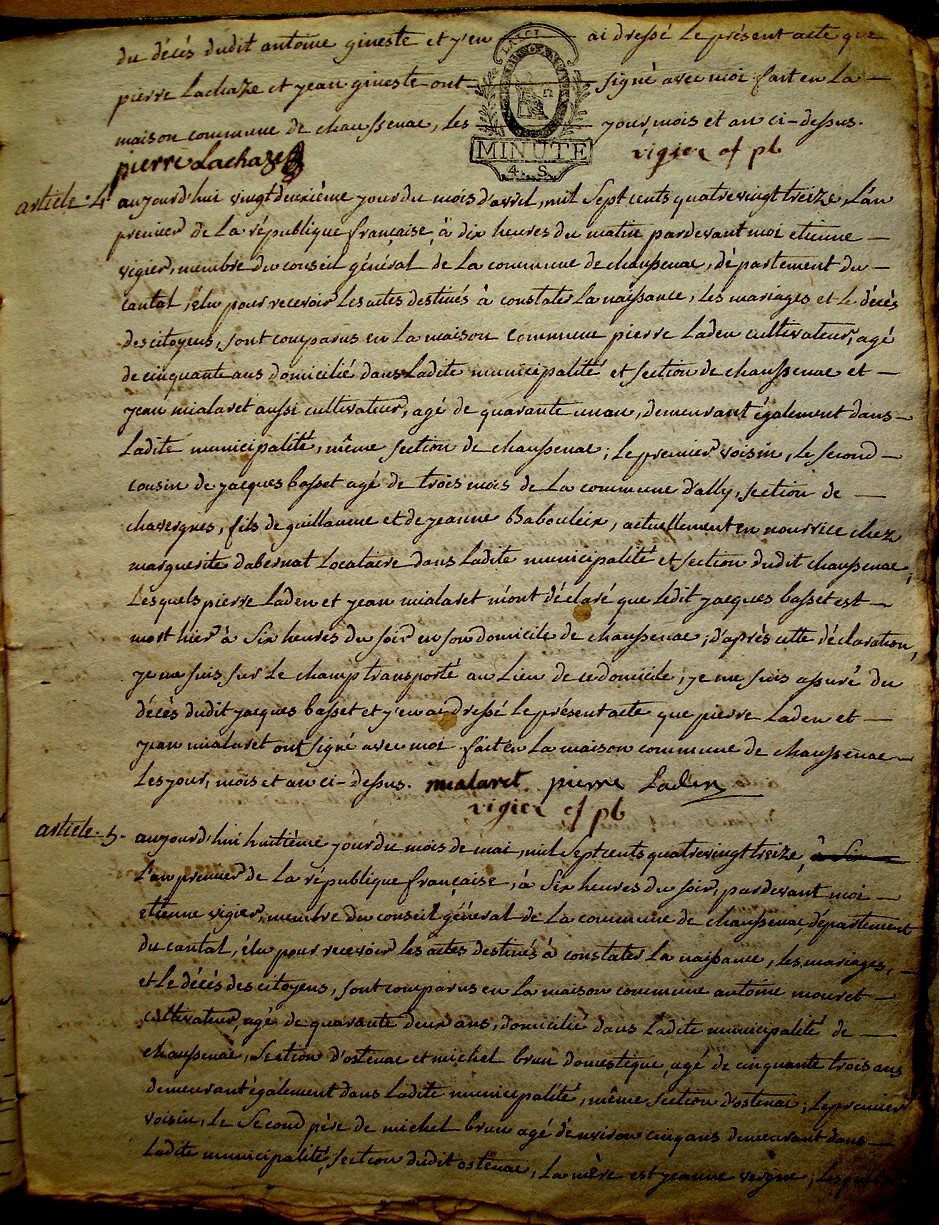 du décés dudit antoine gineste et y'en ai dressé le présent acte que
pierre Lachaze et jean gineste ont signé avec moi fait en la
maison commune de chaussenac, les jour, mois et an ci-dessus.
MINUTE
4. S.
pierre Lachaze vigier of pb
article 4 aujourd'hui vingt deuxième jour du mois d'avril, mil sept cents quatre vingt treize, l'an
premier de la république française, à dix heures du matin pardevant moi etienne
vigier, membre du conseil général de la commune de chaussenac, département du
cantal, élu pour recevoir les actes destinés à constater la naissance, les mariages et le décès
des citoyens, sont comparus en la maison commune pierre Laden cultivateur, agé
de cinquante ans domicilié dans ladite municipalité et section de chaussenac et
jean mialaret aussi cultivateur, agé de quarante un an, demeurant également dans
ladite municipalité, même section de chaussenac; le premier voisin, le second
cousin de jacques basset agé de trois mois de la commune d'ally, section de
chavergnes, fils de guillaume et de jeanne Babouleix, actuellement en nourrice chez
marguerite dabernat locataire dans ladite municipalité et section dudit chaussenac,
lesquels pierre Laden et jean mialaret m'ont déclaré que ledit jacques basset est
mort hier à six heures du soir en son domicile de chaussenac; d'après cette déclaration,
je me suis sur le champ transporté au lieu de ce domicile, je me suis assuré du
décés dudit jacques basset et y'en ai dressé le présent acte que pierre Laden et
jean mialaret ont signé avec moi fait en la maison commune de chaussenac
les jour, mois et an ci-dessus. mialaret pierre Ladin
vigier of pb
article 5. aujourd'hui huitième jour du mois de mai, mil sept cents quatre vingt treize, à six
l'an premier de la république française, à six heures du soir, pardevant moi
etienne vigier, membre du conseil général de la commune de chaussenac, département
du cantal, élu pour recevoir les actes destinés à constater la naissance, les mariages,
et le décès des citoyens, sont comparus en la maison commune antoine mouret
cultivateur, agé de quarante deux ans, domicilié dans ladite municipalité de
chaussenac, section d'ostenac et michel brun domestique, agé de cinquante trois ans
demeurant également dans ladite municipalité, même section d'ostenac; le premier
voisin, le second père de michel brun agé d'environ cinq ans demeurant dans
ladite municipalité, section dudit ostenac, la mère est jeanne vergne; lesquels